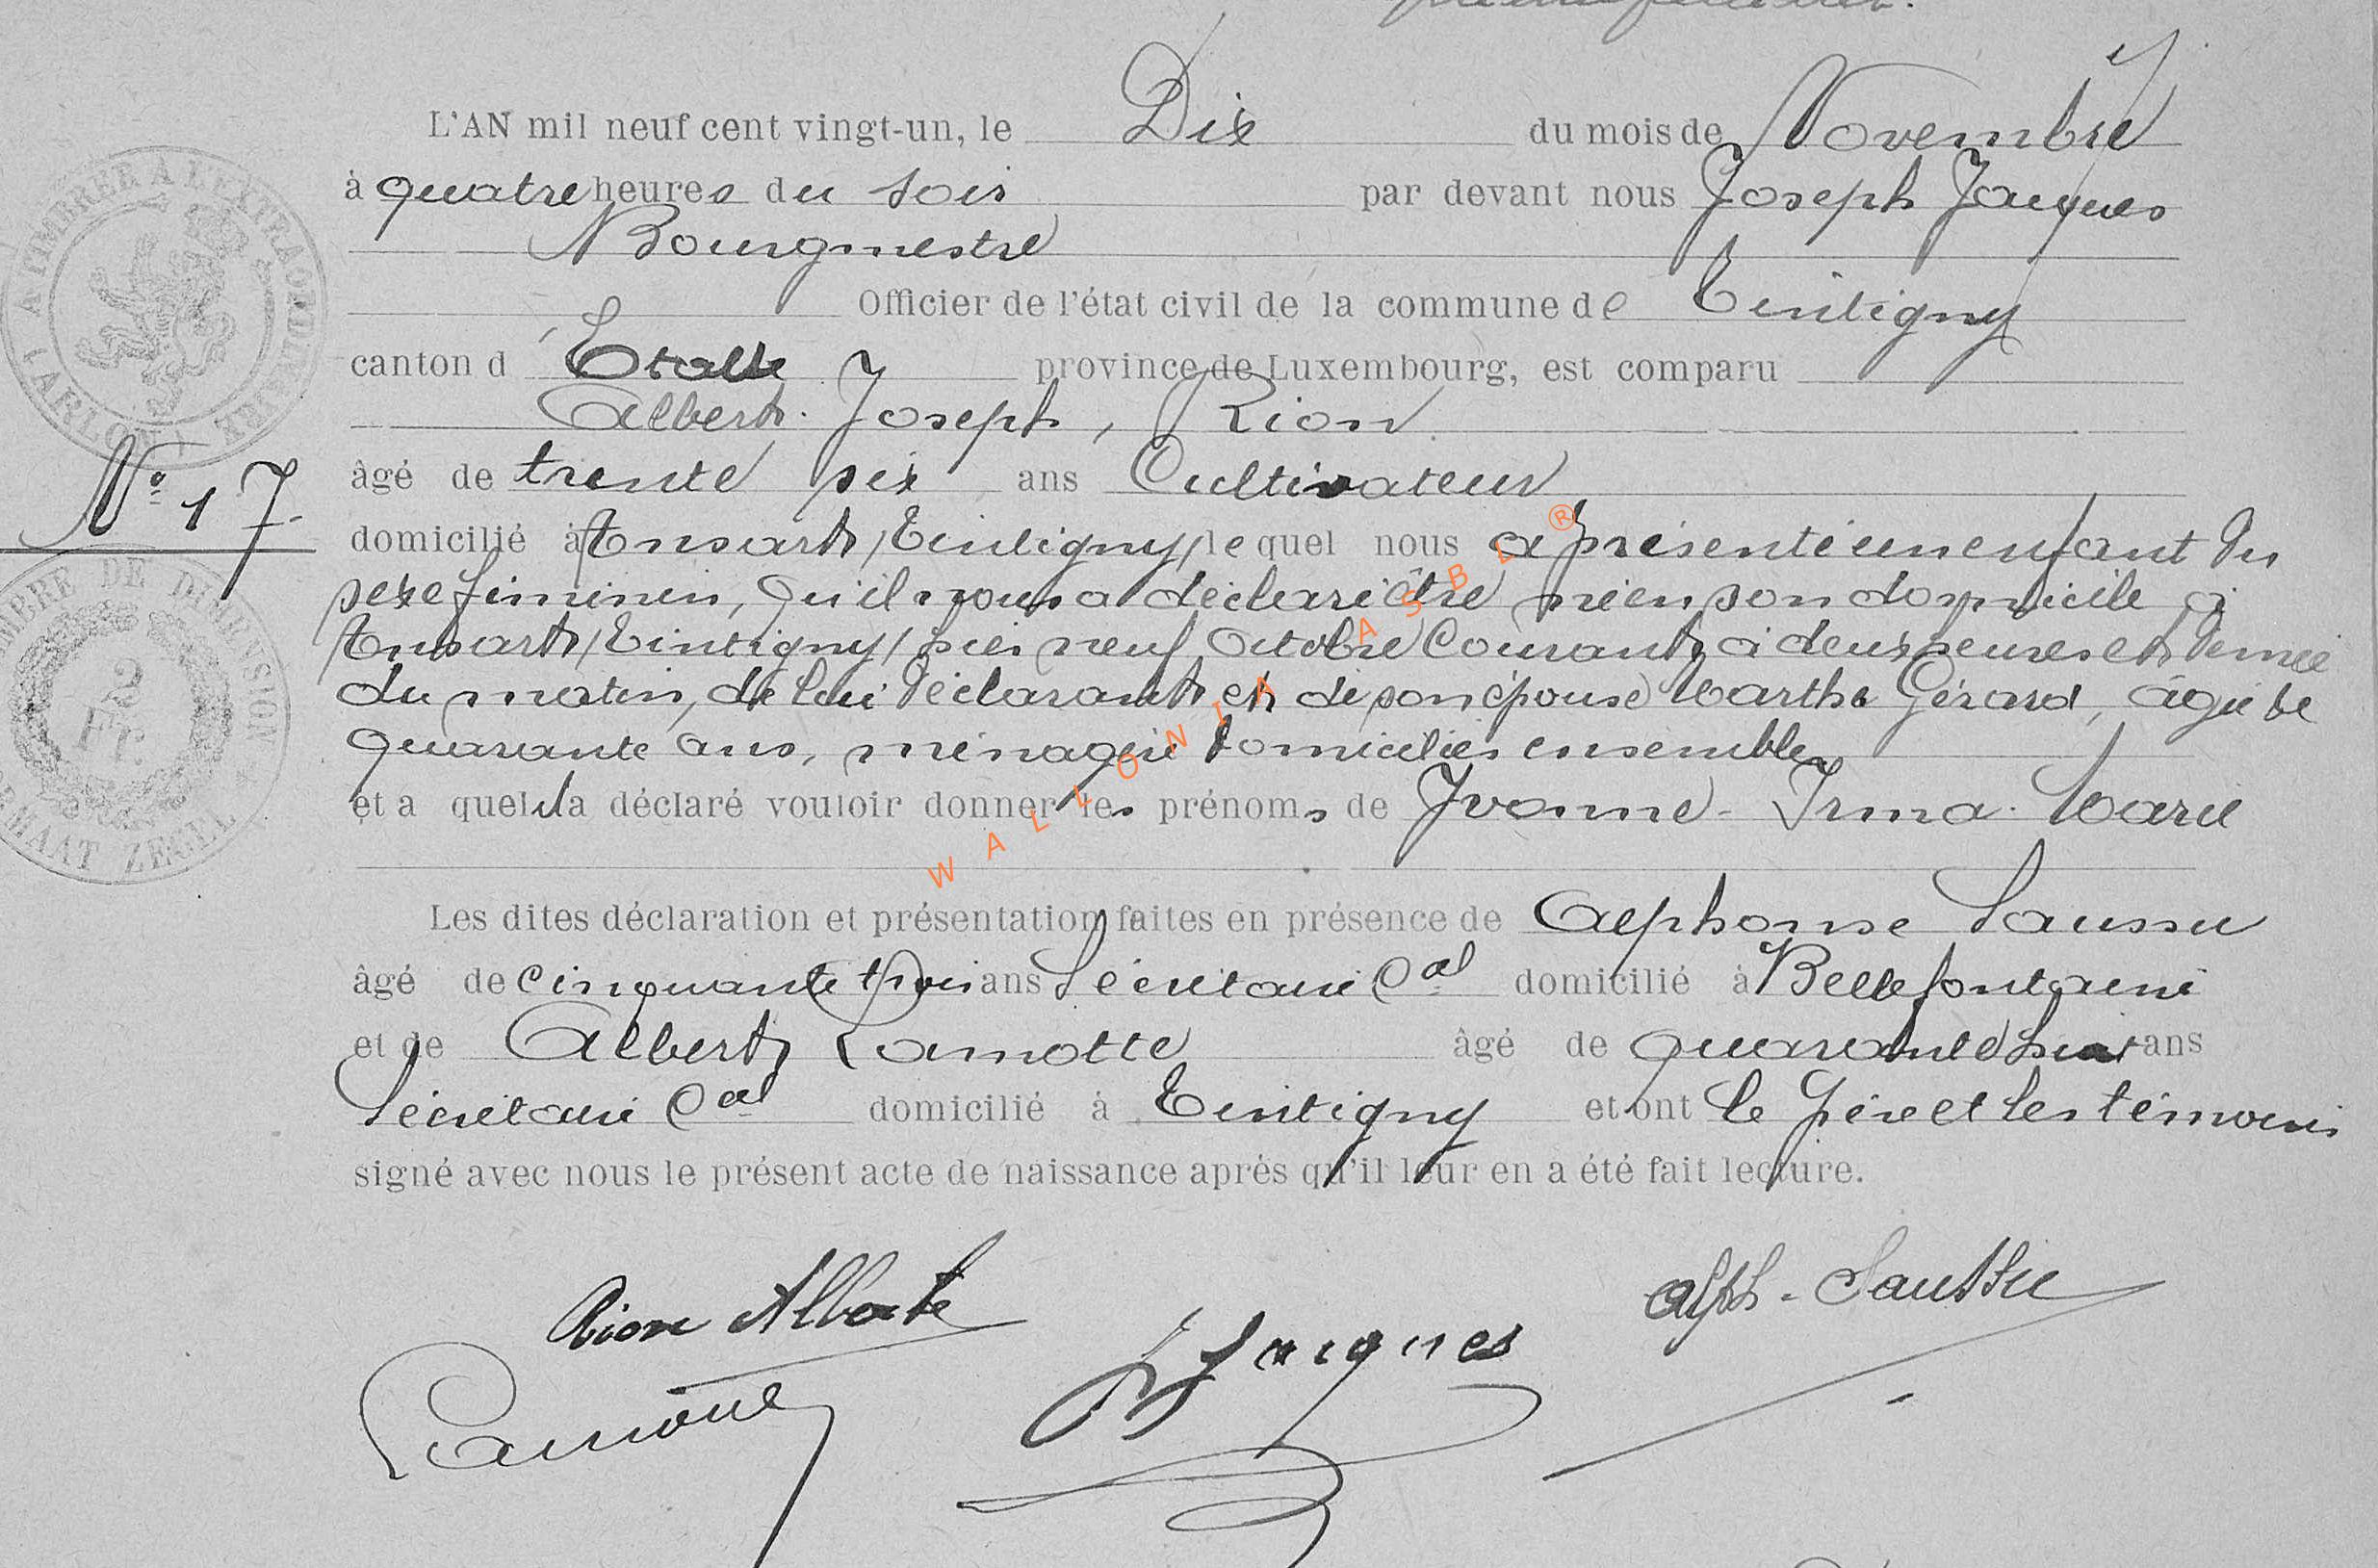 L'AN mil neuf cent vingt-un, le Dix du mois de Novembre
à quatre heures du soir par devant nous Joseph Jacques
Bourgmestre
Officier de l'état civil de la commune de Tintigny
canton d'Etalle province de Luxembourg, est comparu
Albert Joseph, Rion
âgé de trente six ans Cultivateur
N° 17
domicilié à Ansart /Tintigny/ lequel nous a présenté un enfant du
sexe féminin, qu'il nous a déclaré être né en son domicile à
Ansart /Tintigny/ hier neuf octobre courant à deux heures et demie
du matin, de lui déclarant et de son épouse Martha Gérard, âgée de
quarante ans, ménagère domiciliés ensemble
et a quel il a déclaré vouloir donner les prénoms de Yvonne-Irma-Marie
Les dites déclaration et présentation faites en présence de Alphonse Saussu
âgé de cinquante trois ans Secrétaire Cal domicilié à Bellefontaine
et de Albert Lamotte âgé de quarante huit ans
Secrétaire Cal domicilié à Tintigny et ont le père et les témoins
signé avec nous le présent acte de naissance après qu'il leur en a été fait lecture.
Rion Albert
Alph. Saussu
J Jacques
Lamotte
A TIMBRER A L'EXTRAORDINAIRE
ARLON
TIMBRE DE DIMENSION
2
Fr.
FORMAAT ZEGEL
WALLONIA ASBL ®